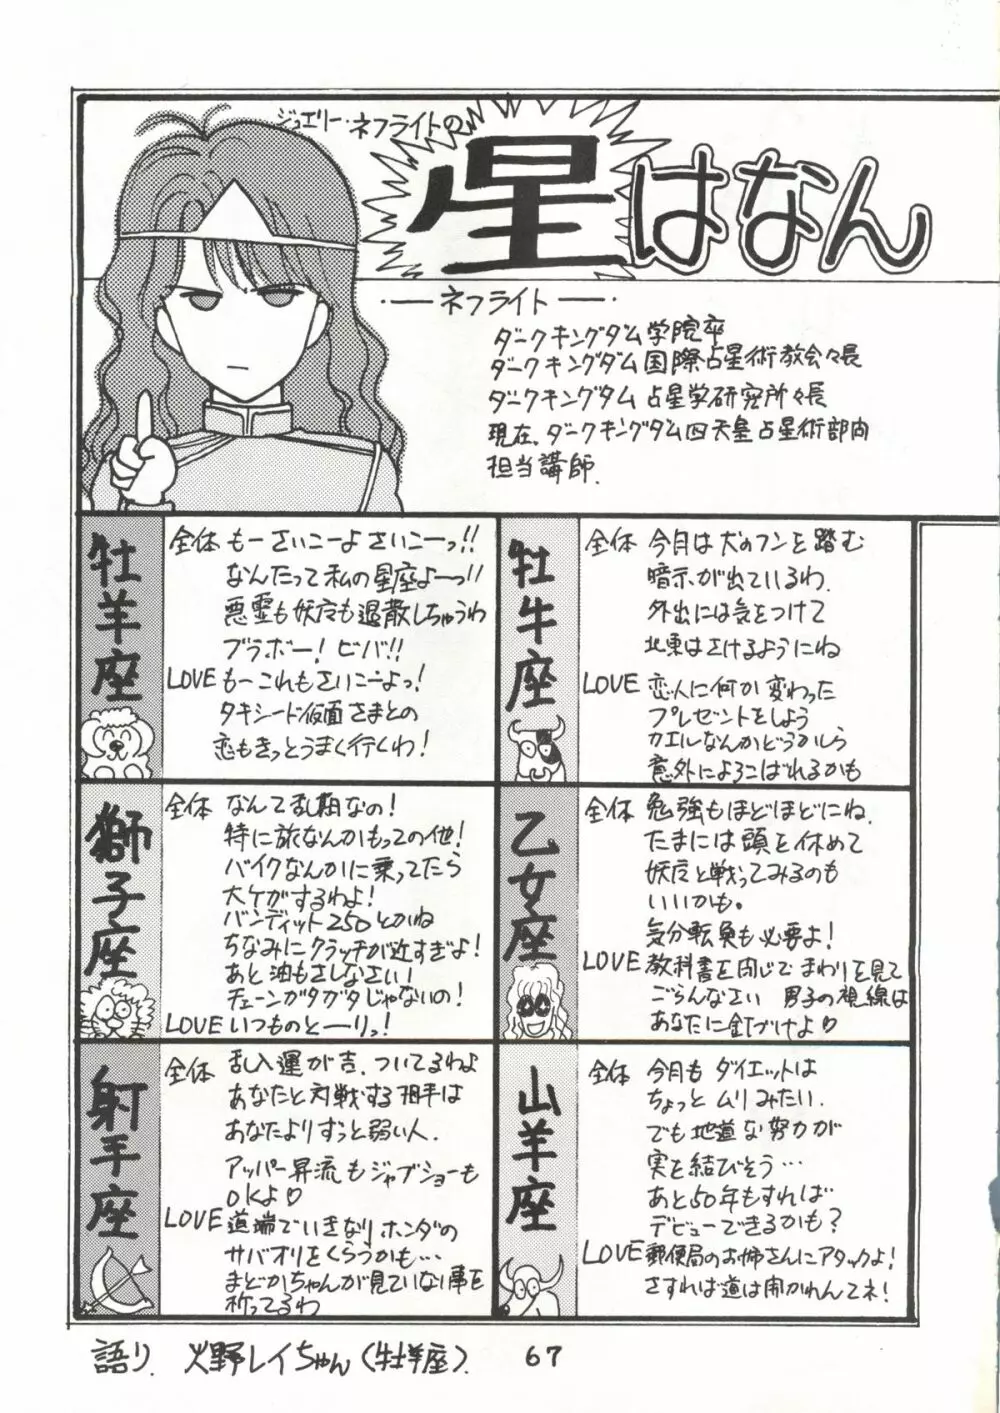 ジュエリー・ネフライトの
星はなん
・―ネフライト―・
ダークキングダム学院卒
ダークキングダム国際占星術教会々長
ダークキングダム占星学研究所々長
現在、ダークキングダム四天皇占星術部門
担当講師.
牡羊座
全体 もーさいこーよさいこーっ!!
なんたって私の星座よーっ!!
悪霊も妖魔も退散しちゃうわ
ブラボー!ビバ!!
LOVE もーこれもさいこーよっ!
タキシード仮面さまとの
恋もきっとうまく行くわ!
牡牛座
全体 今月は犬のフンを踏む
暗示が出ているわ.
外出には気をつけて
北東はさけるようにね
LOVE 恋人に何か変わった
プレゼントをしよう
カエルなんかどうかしら
意外によろこばれるかも
獅子座
全体 なんて乱期なの!
特に旅なんかもっての他!
バイクなんかに乗ってたら
大ケガするわよ!
バンディット250とかね
ちなみにクラッチが近すぎよ!
あと油もさしなさい!
チェーンがタガタじゃないの!
LOVE いつものとーりっ!
乙女座
全体 勉強もほどほどにね.
たまには頭を休めて
妖魔と戦ってみるのも
いいかも。
気分転換も必要よ!
LOVE 教科書を閉じてまわりを見て
ごらんなさい 男子の視線は
あなたに釘づけよ♡
射手座
全体 乱入運が吉.ついてるわよ
あなたと対戦する相手は
あなたよりずっと弱い人.
アッパー昇流もジャブショーも
OKよ♡
LOVE 道端でいきなりホンダの
サバオリをくらうかも…
まどかちゃんが見ていない事を
祈ってるわ
山羊座
全体 今月もダイエットは
ちょっとムリみたい.
でも地道な努力が
実を結びそう…
あと50年もすれば
デビューできるかも?
LOVE 郵便局のお姉さんにアタックよ!
さすれば道は開かれんてネ!
語り. 火野レイちゃん(牡羊座).
67